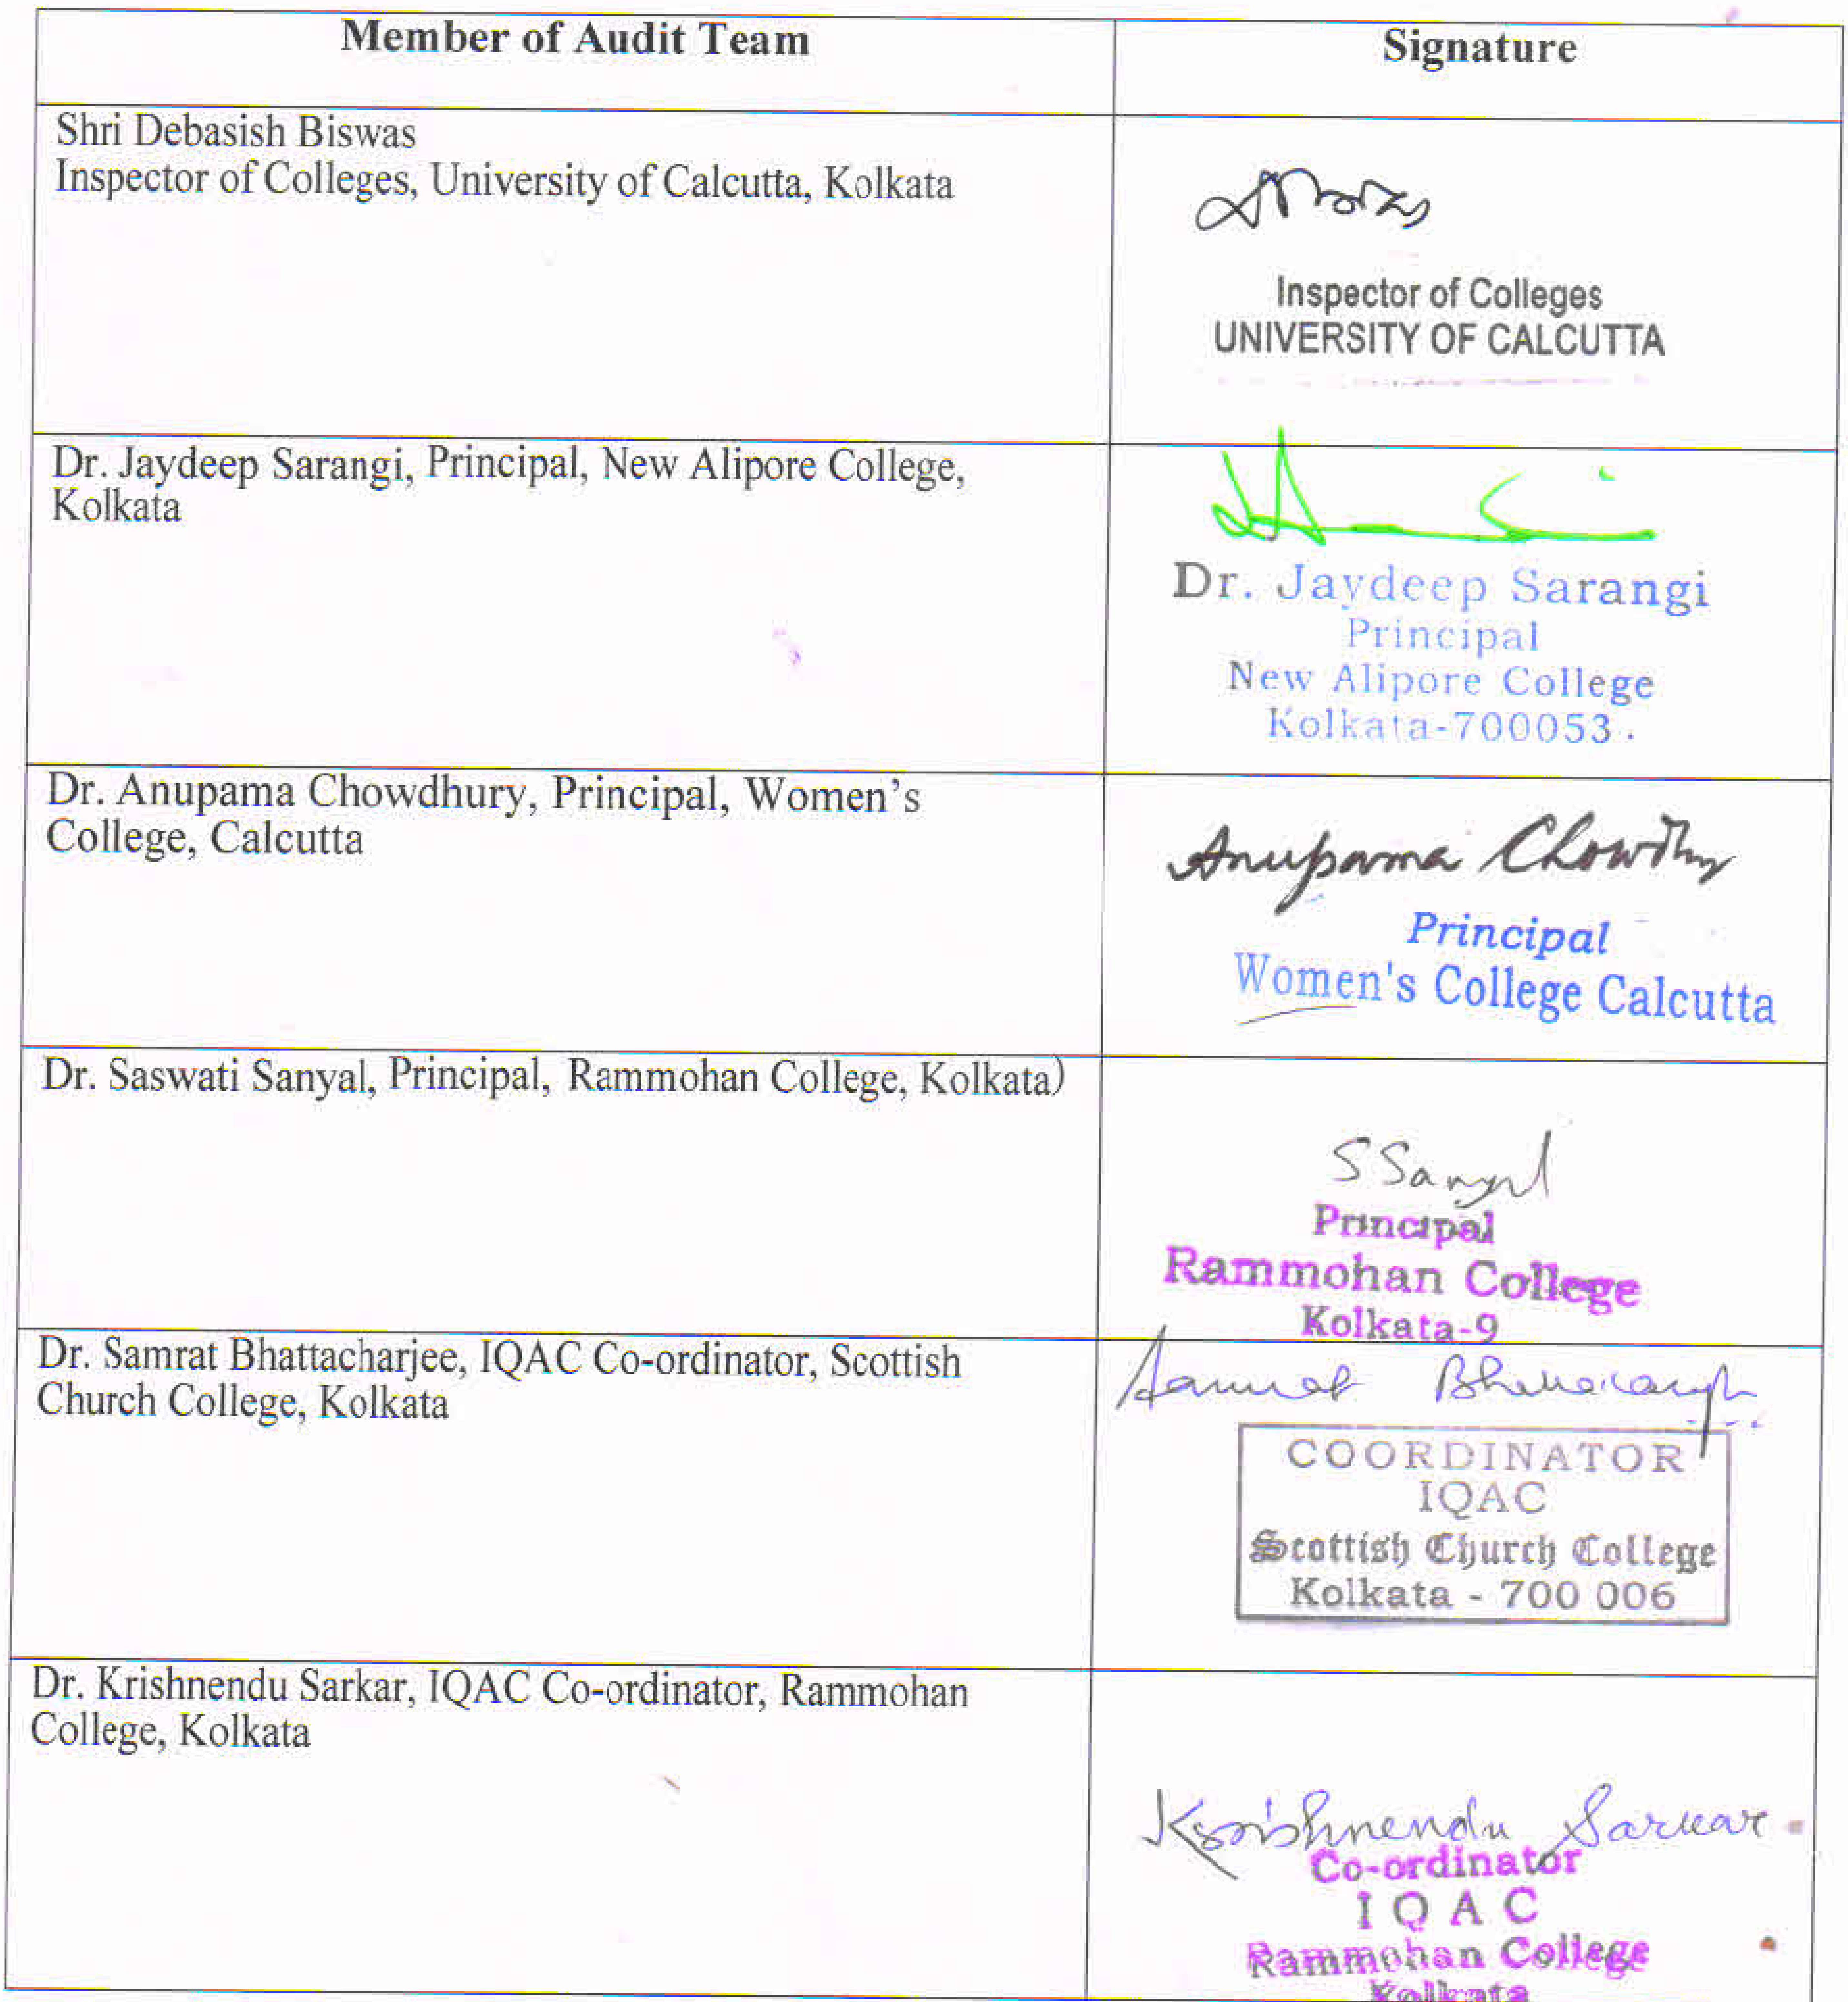 Member of Audit Team
Signature
Shri Debasish Biswas
Inspector of Colleges, University of Calcutta, Kolkata
Inspector of Colleges
UNIVERSITY OF CALCUTTA
Dr. Jaydeep Sarangi, Principal, New Alipore College,
Kolkata
Dr. Jaydeep Sarangi
Principal
New Alipore College
Kolkata-700053.
Dr. Anupama Chowdhury, Principal, Women's
College, Calcutta
Anupama Chowdhury
Principal
Women's College Calcutta
Dr. Saswati Sanyal, Principal, Rammohan College, Kolkata)
S Sanyal
Principal
Rammohan College
Kolkata-9
Dr. Samrat Bhattacharjee, IQAC Co-ordinator, Scottish
Church College, Kolkata
Samrat Bhattacharjee
COORDINATOR
IQAC
Scottish Church College
Kolkata - 700 006
Dr. Krishnendu Sarkar, IQAC Co-ordinator, Rammohan
College, Kolkata
Krishnendu Sarkar
Co-ordinator
I Q A C
Rammohan College
Kolkata